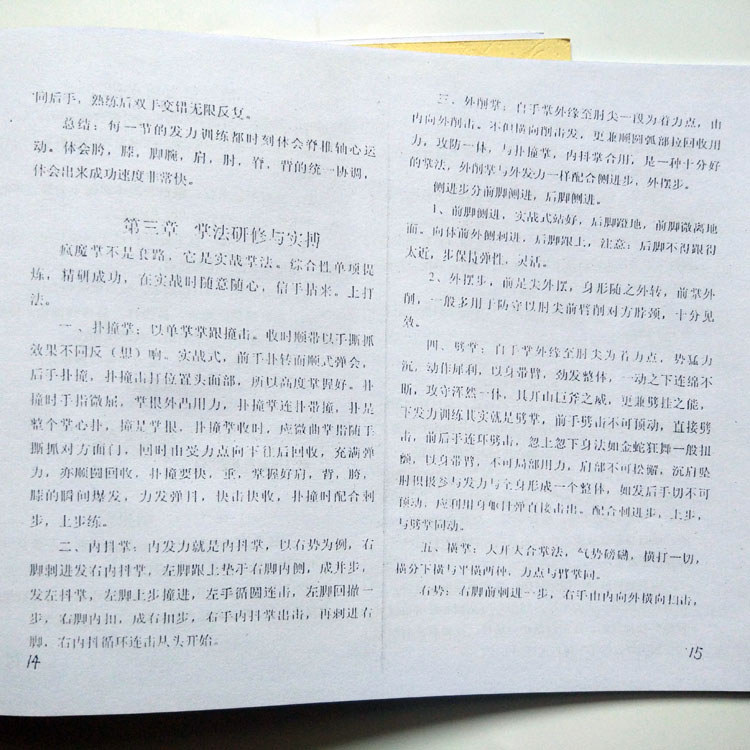 向后手，熟练后双手交错无限反复。
总结：每一节的发力训练都时刻体会脊椎轴心运
动。体会胯，膝，脚腕，肩，肘，脊，背的统一协调，
体会出来成功速度非常快。
第三章 掌法研修与实搏
疯魔掌不是套路，它是实战掌法。综合性单项提
炼，精研成功，在实战时随意随心，信手拈来。上打
法。
一、扑撞掌：以单掌掌跟撞击。收时顺带以手撕抓
效果不同反（想）响。实战式，前手扑转而顺式弹会，
后手扑撞，扑撞击打位置头面部，所以高度掌握好。扑
撞时手指微屈，掌根外凸用力，扑撞掌连扑带撞，扑是
整个掌心扑，撞是掌根，扑撞掌收时，应微曲掌指随手
撕抓对方面门，回时由受力点向下往后回收，充满弹
力，亦顺圆回收，扑撞要快，重，掌握好肩，背，胯，
膝的瞬间爆发，力发弹抖，快击快收，扑撞时配合刺
步，上步练。
二、内抖掌：内发力就是内抖掌，以右势为例，右
脚刺进发右内抖掌，左脚跟上垫于右脚内侧，成并步，
发左抖掌，左脚上步撞进，左手循圆连击，左脚回撤一
步，右脚内扣，成右扣步，右手内抖掌出击，再刺进右
脚，右内抖循环连击从头开始。
14
三、外削掌：自手掌外缘至肘尖一段为着力点，由
内向外削击。不但横向削击发，更兼顺圆弧部拉回收用
力，攻防一体，与扑撞掌，内抖掌合用，是一种十分好
的掌法，外削掌与外发力一样配合侧进步，外摆步。
侧进步分前脚侧进，后脚侧进。
1、前脚侧进，实战式站好，后脚蹬地，前脚微离地
面。向体前外侧刺进，后脚跟上，注意：后脚不得跟得
太近，步保持弹性，灵活。
2、外摆步，前足尖外摆，身形随之外转，前掌外
削，一般多用于防守以肘尖前臂削对方脖颈，十分见
效。
四、劈掌：自手掌外缘至肘尖为着力点，势猛力
沉，动作犀利，以身带臂，劲发整体，一动之下连绵不
断，攻守浑然一体，其开山巨斧之威，更兼劈挂之能，
下发力训练其实就是劈掌，前手劈击不可顶动，直接劈
击，前后手连环劈击，忽上忽下身法如金蛇狂舞一般扭
颤，以身带臂，不可局部用力，肩部不可松懈，沉肩坠
肘积极参与发力与全身形成一个整体，如发后手切不可
预动，应利用身躯抖弹直接击出。配合刺进步，上步，
与劈掌同动。
五、横掌：大开大合掌法，气势磅礴，横打一切，
横分下横与平横两种，力点与臂掌同。
右势：右脚前刺进一步，右手由内向外横向扫击，
15